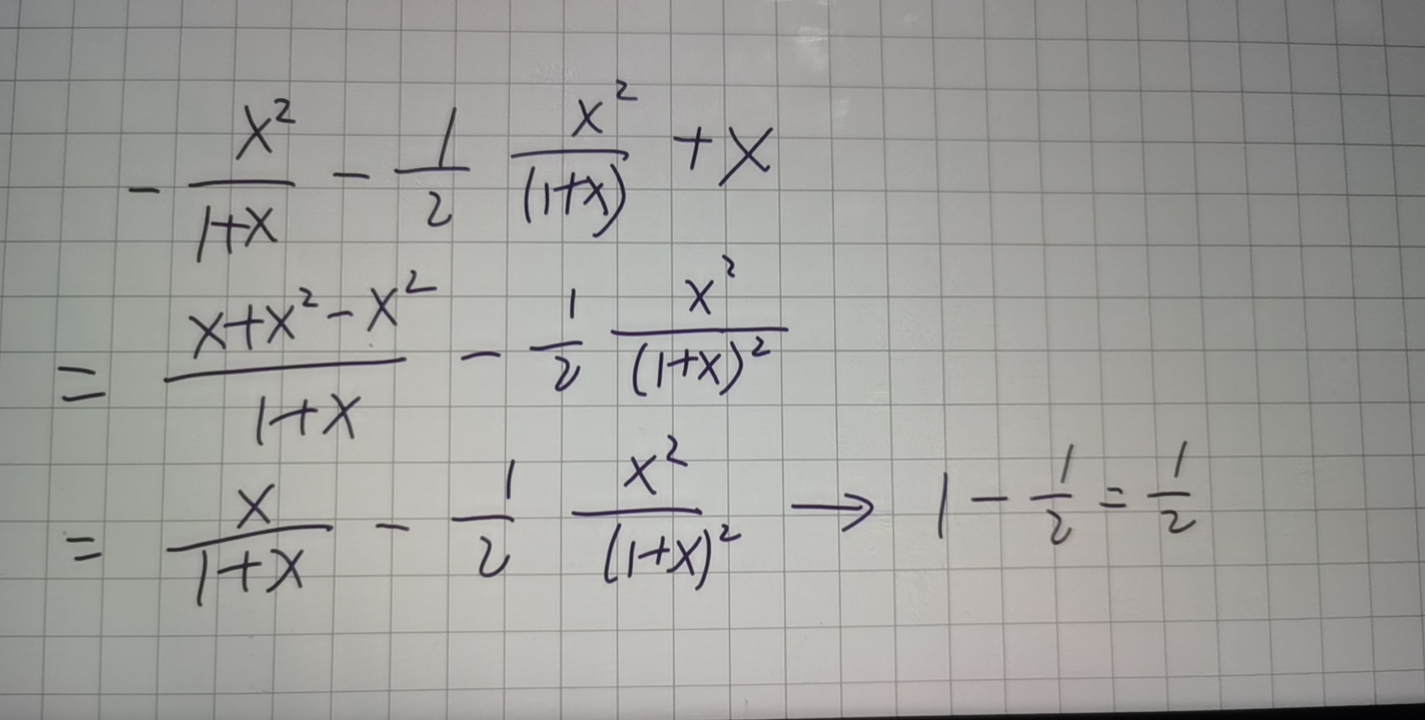 - x²/(1+x) - 1/2 x²/((1+x)) + x
= (x+x²-x²)/(1+x) - 1/2 x²/(1+x)²
= x/(1+x) - 1/2 x²/(1+x)² → 1 - 1/2 = 1/2